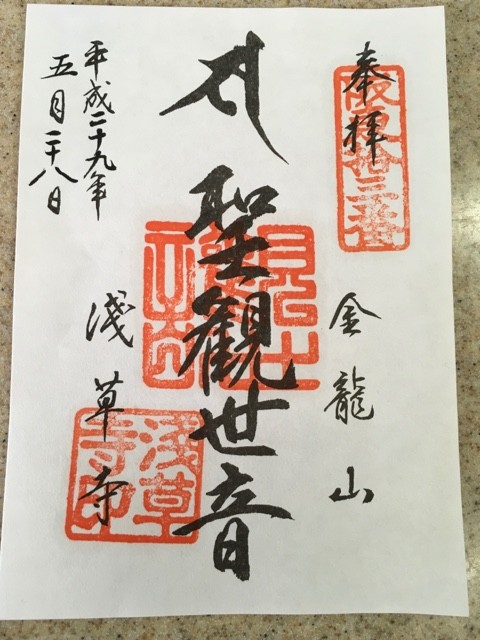 奉拝
坂東拾三番
金龍山
聖観世音
平成二十九年
五月二十八日
浅草寺
浅草寺印